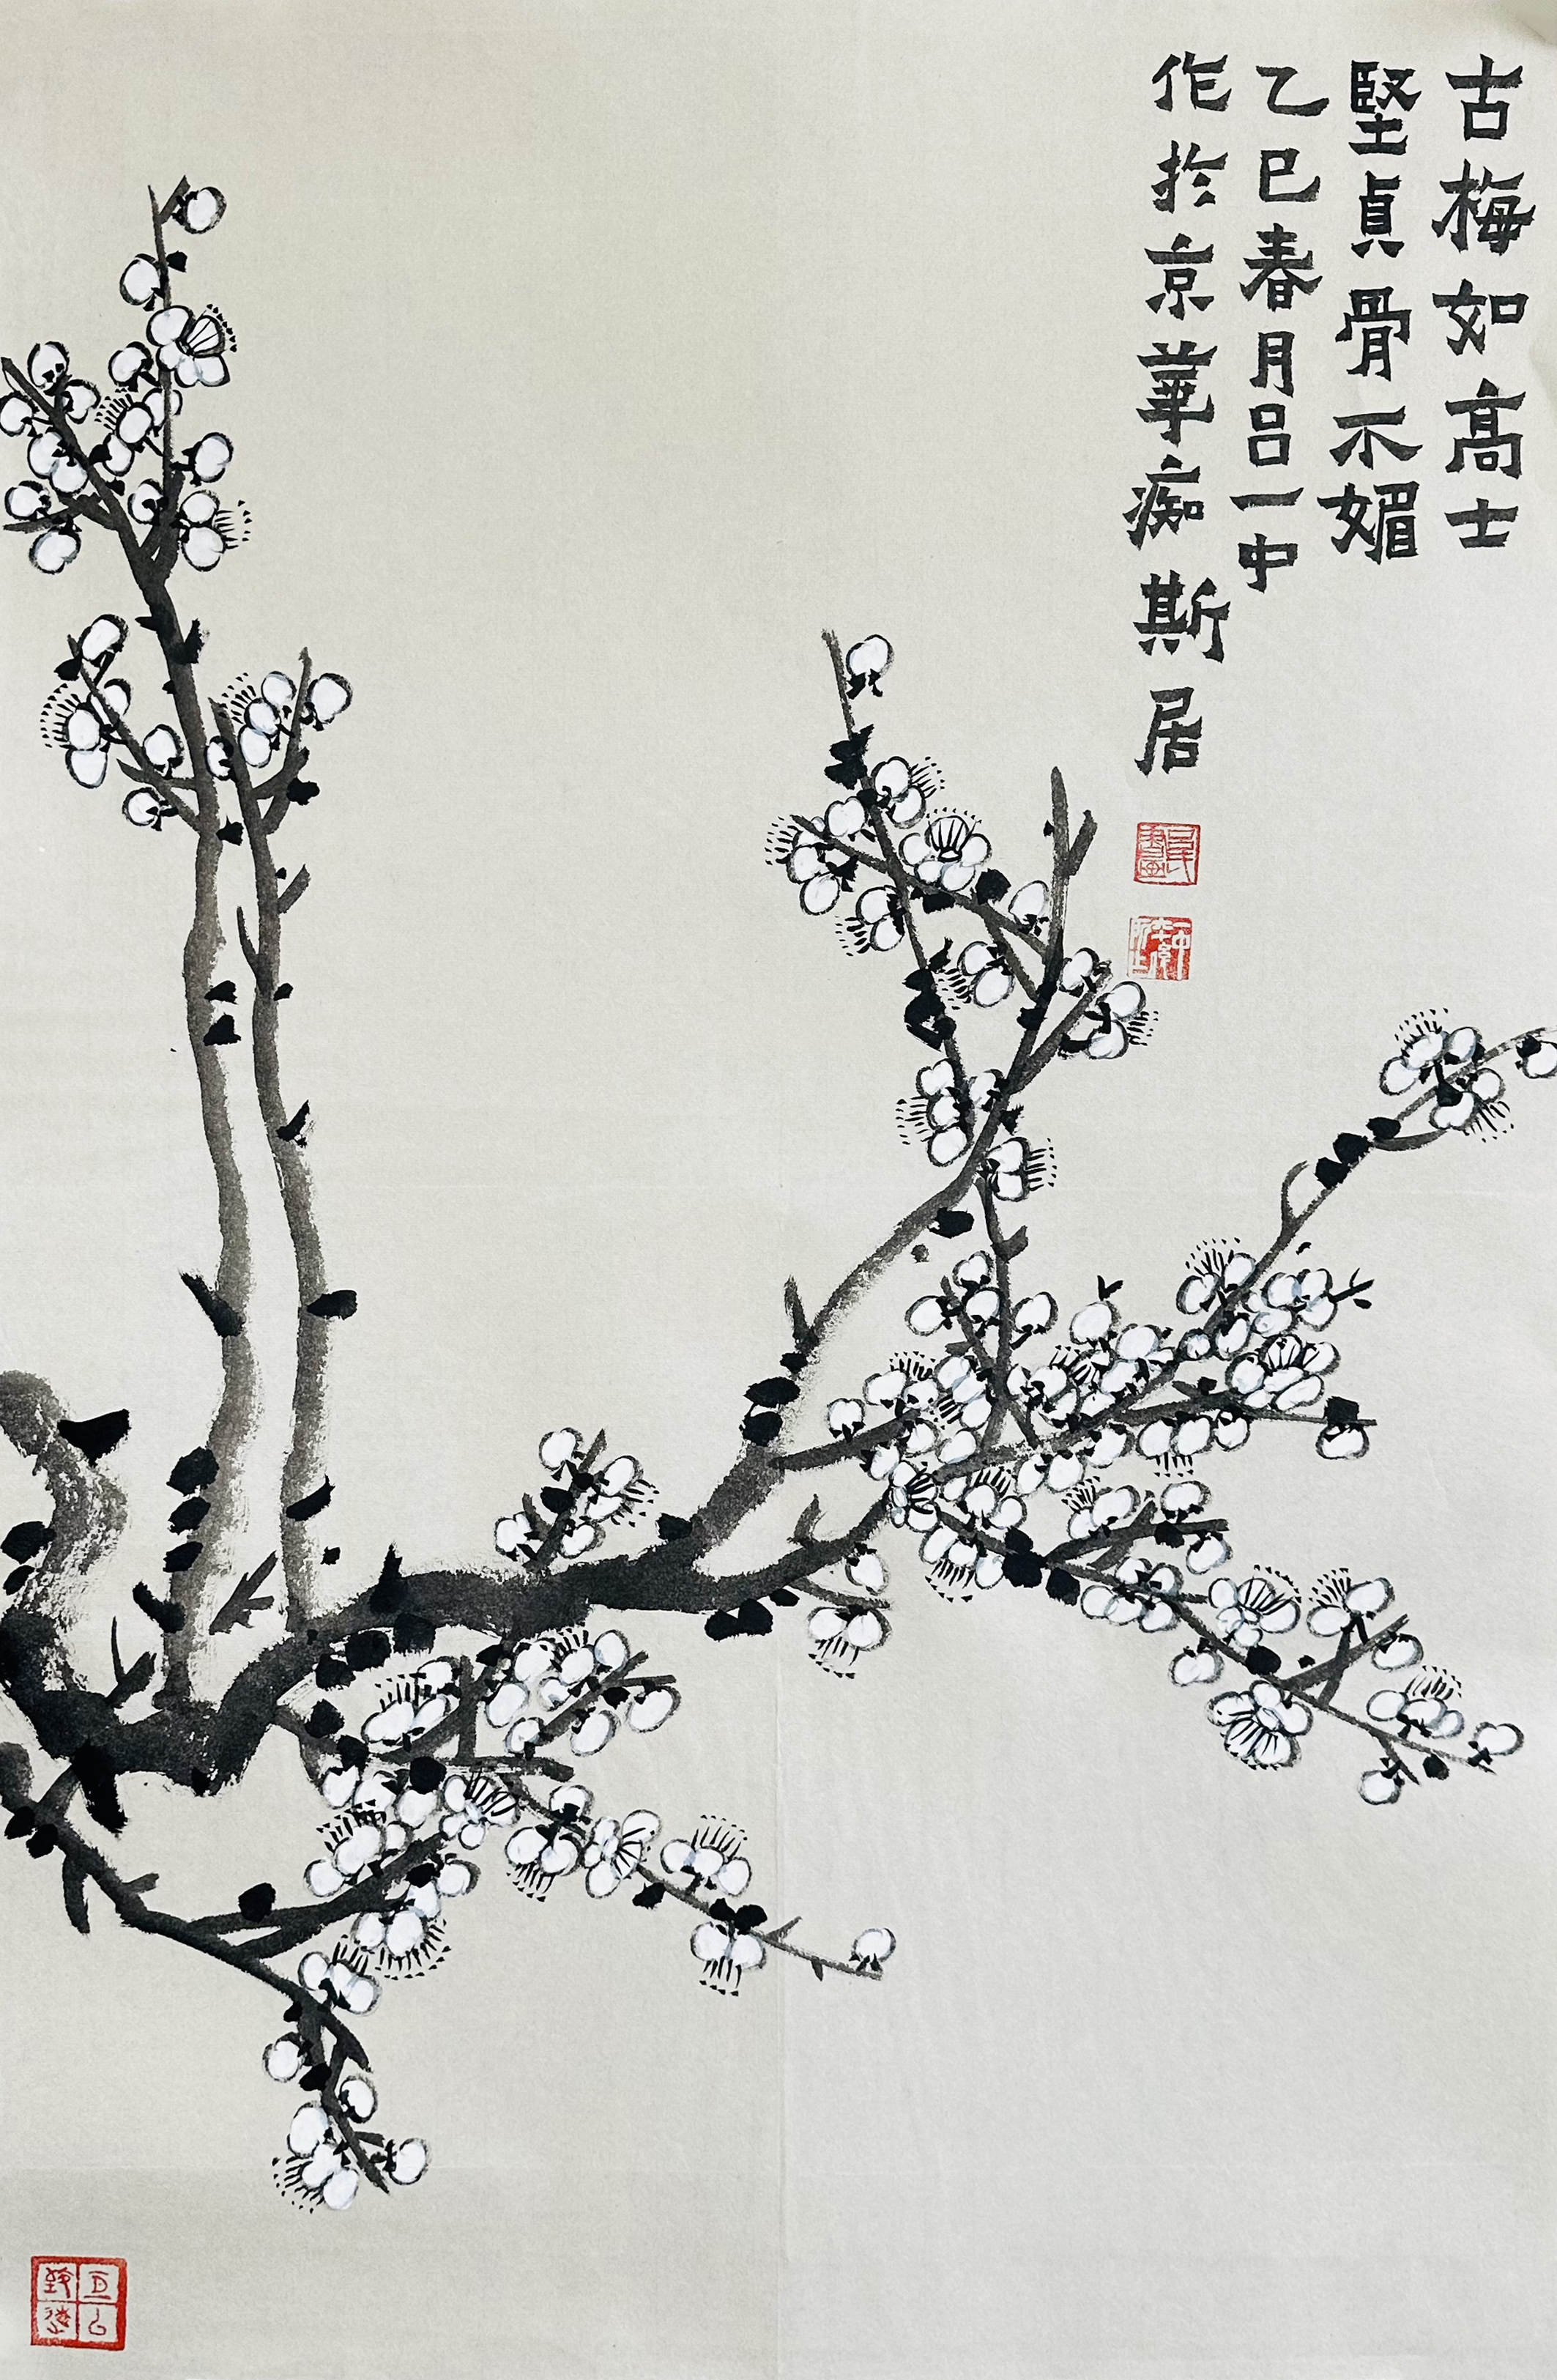 古梅如高士
堅貞骨不媚
乙巳春月吕一中
作於京華痴斯居